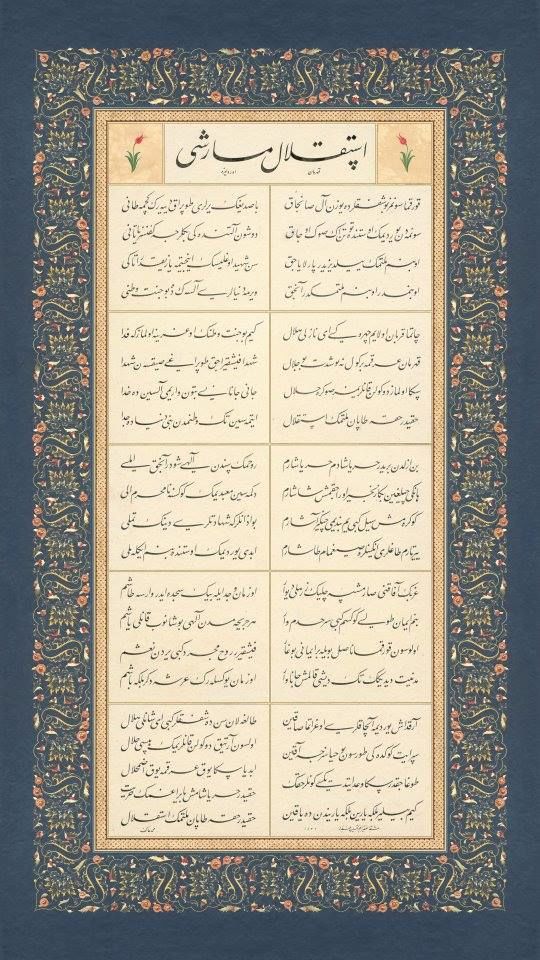 استقلال مارشی
قهرمان
اوردومزه
قورقما سونمز بو شفقلرده یوزن آل صانجاق
سونمه‌دن یوردیمڭ اوستنده توتن اڭ صوڭ اوجاق
او بنم ملتمڭ ییلدیزیدر پارلایاجق
او بنمدر او بنم ملتمڭدر آنجق
چاتما قربان اولایم چهره‌ڭی ای نازلی هلال
قهرمان عرقمه بر کول نه بو شدت بو جلال
سڭا اولماز دوکولن قانلریمز صوڭره حلال
حقیدر حقه طاپان ملتمڭ استقلال
بن ازلدن بریدر حر یاشادم حر یاشارم
هانکی چیلغین بڭا زنجیر اوراجقمش شاشارم
کوکره‌مش سیل کبی‌یم بندیمی چیکنر آشارم
ییرتارم طاغلری انکینلره صیغمام طاشارم
غربڭ آفاقنی صارمشسه چلیک زرهلی دیوار
بنم ایمان طولو کوکسم کبی سرحدم وار
اولوسون قورقما ناصل بویله بر ایمانی بوغار
مدنیت دیدیکڭ تک دیشی قالمش جاناوار
آرقداش یوردیمه آلچاقلری اوغراتما صاقین
سپر ایت کوکده‌ڭی طورسون بو حیاسزجه آقین
طوغاجقدر سڭا وعد ایتدیکی کونلر حقڭ
کیم بیلیر بلکه یارین بلکه یاریندن ده یاقین
باصدیغڭ یرلری طوپراق دییه‌رک کچمه طانی
دوشون آلتنده‌کی بیکلرجه کفنسز یاتانی
سن شهید اوغلیسڭ اینجیتمه یازیقدر آتاڭی
ویرمه دنیالری آلسه‌ڭ ده بو جنت وطنی
کیم بو جنت وطنڭ اوغرینه اولماز که فدا
شهدا فیشقیراجق طوپراغی صیقسه‌ڭ شهدا
جانی جانانی بتون واریمی آلسین ده خدا
ایتمه‌سین تک وطنمدن بنی دنیاده جدا
روحمڭ سندن آلهی شودر آنجق املی
دکمه‌سین معبدیمڭ کوکسنه نامحرم الی
بو اذانلر که شهادتلری دینڭ تملی
ابدی یوردیمڭ اوستنده بنم ایکله‌ملی
او زمان وجد ایله بیڭ سجده ایدر وارسه طاشم
هر جریحه‌مدن آلهی بوشانوب قانلی یاشم
فیشقیرر روح مجرد کبی یردن نعشم
او زمان یوکسله‌رک عرشه دکر بلکه باشم
طالغه‌لان سن ده شفقلر کبی ای شانلی هلال
اولسون آرتیق دوکولن قانلریمڭ هپسی حلال
ابدیا سڭا یوق عرقمه یوق اضمحلال
حقیدر حر یاشامش بایراغمڭ حریت
حقیدر حقه طاپان ملتمڭ استقلال